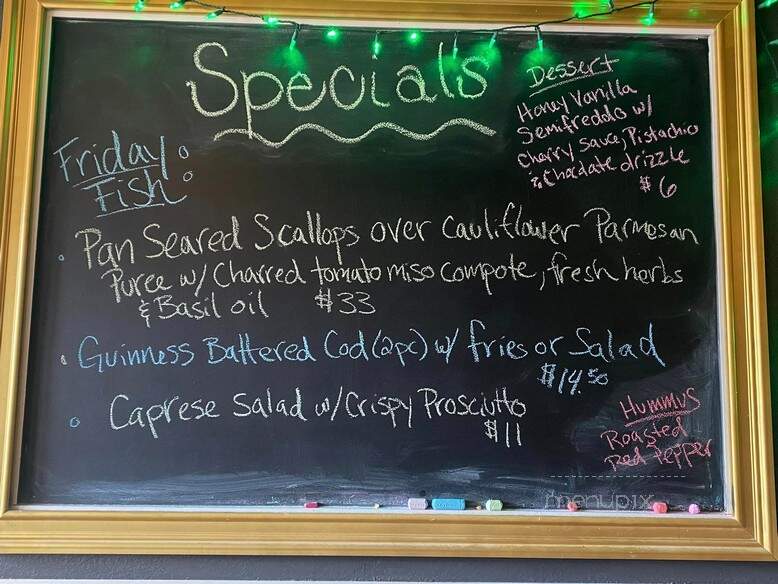 Specials
Dessert
Honey Vanilla
Semifreddo w/
Cherry Sauce, Pistachio
& Chocolate drizzle
$6
Friday
Fish:
Pan Seared Scallops over Cauliflower Parmesan
Puree w/ Charred tomato miso compote, fresh herbs
& Basil oil $33
Guinness Battered Cod (2pc) w/ fries or Salad
$14.50
Caprese Salad w/ Crispy Prosciutto
$11
Hummus
Roasted
Red Pepper
menupix